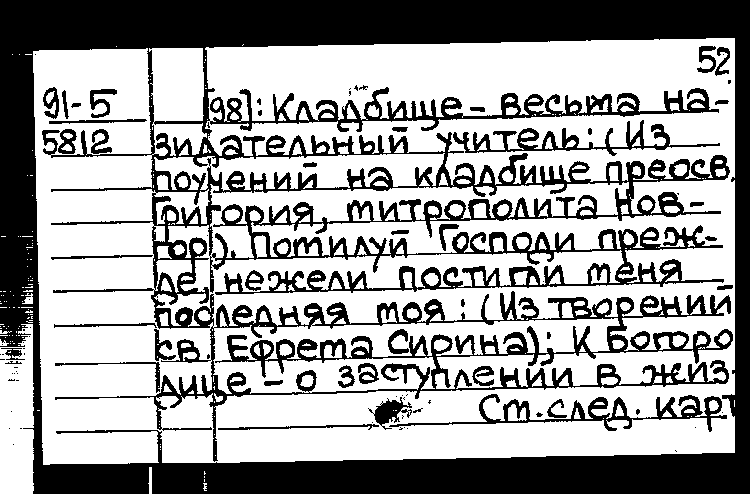 52
91-5 [98]: Кладбище - весьма на-
5812 зидательный учитель: (Из
поучений на кладбище преосв.
Григория, митрополита Нов-
гор.). Помилуй Господи преж-
де, нежели постигли меня
последняя моя: (Из творений
св. Ефрема Сирина); К Богоро
дице - о заступлении в жиз-
См. след. карт